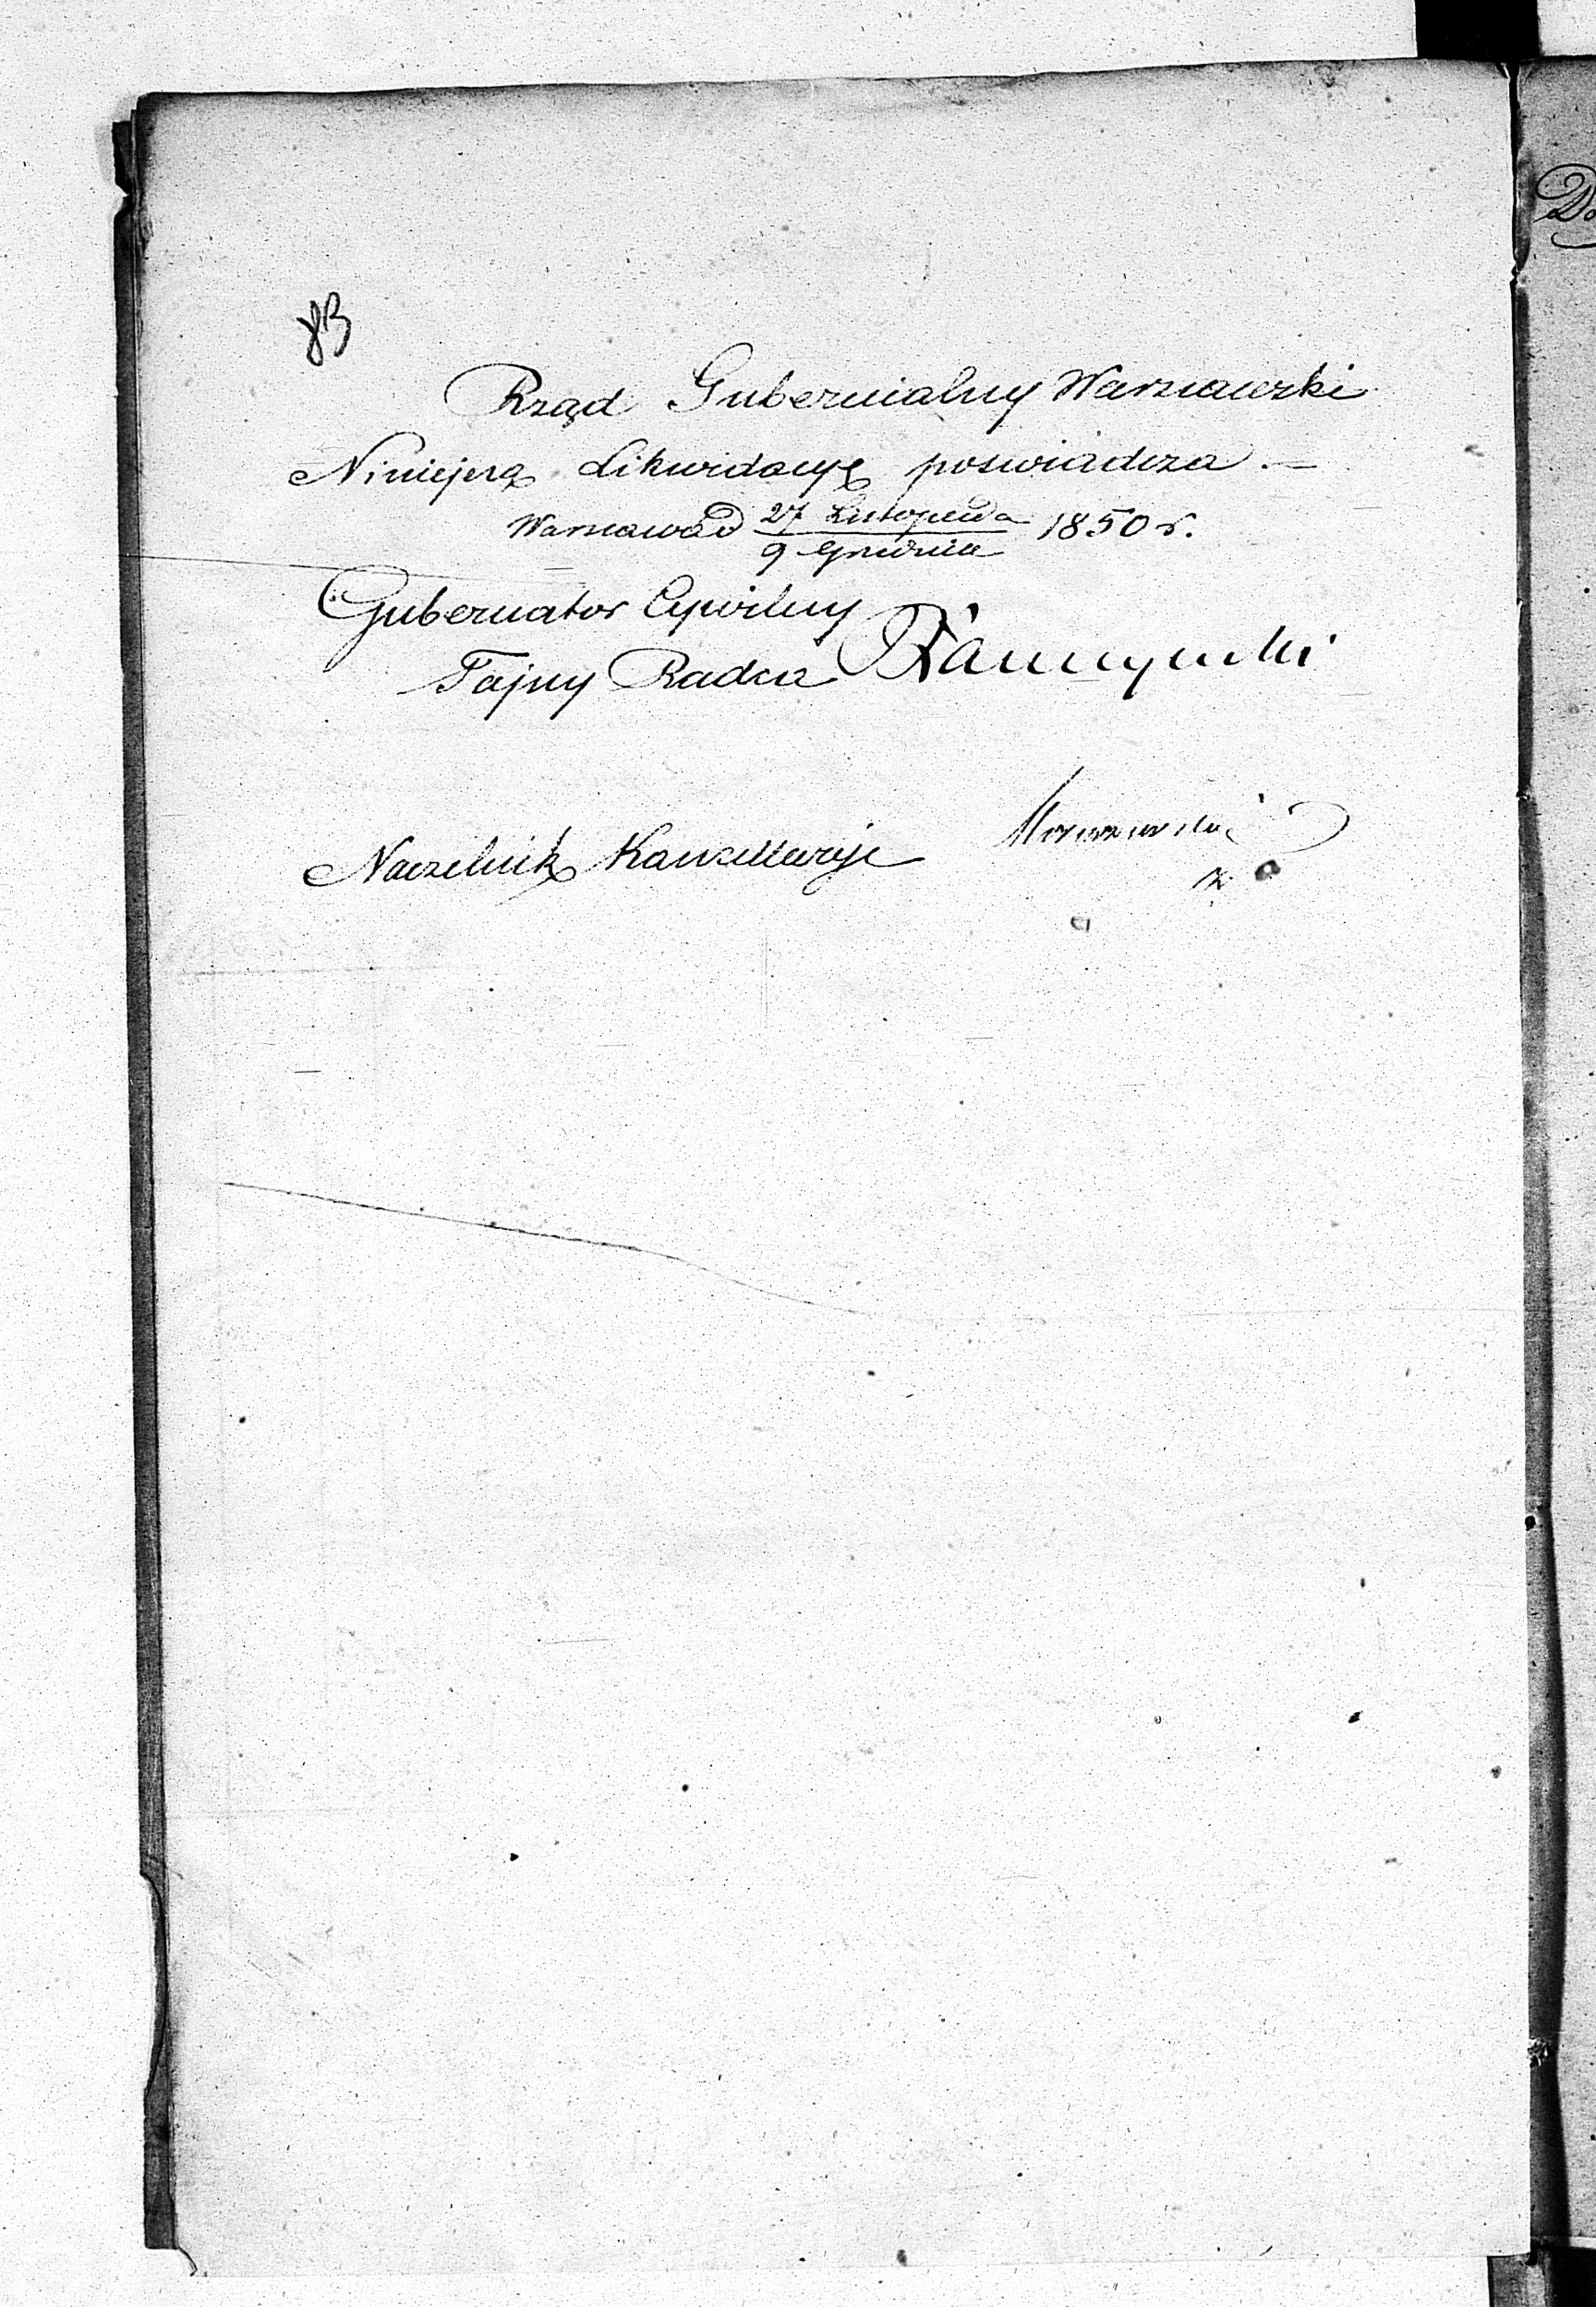 83
Rząd Gubernialny Warszawski
Niniejszą Likwidacyę poświadcza. —
Warszawa d 27 Listopada / 9 Grudnia 1850 r.
Gubernator Cywilny
Tajny Radca
Naczelnik Kancellaryi